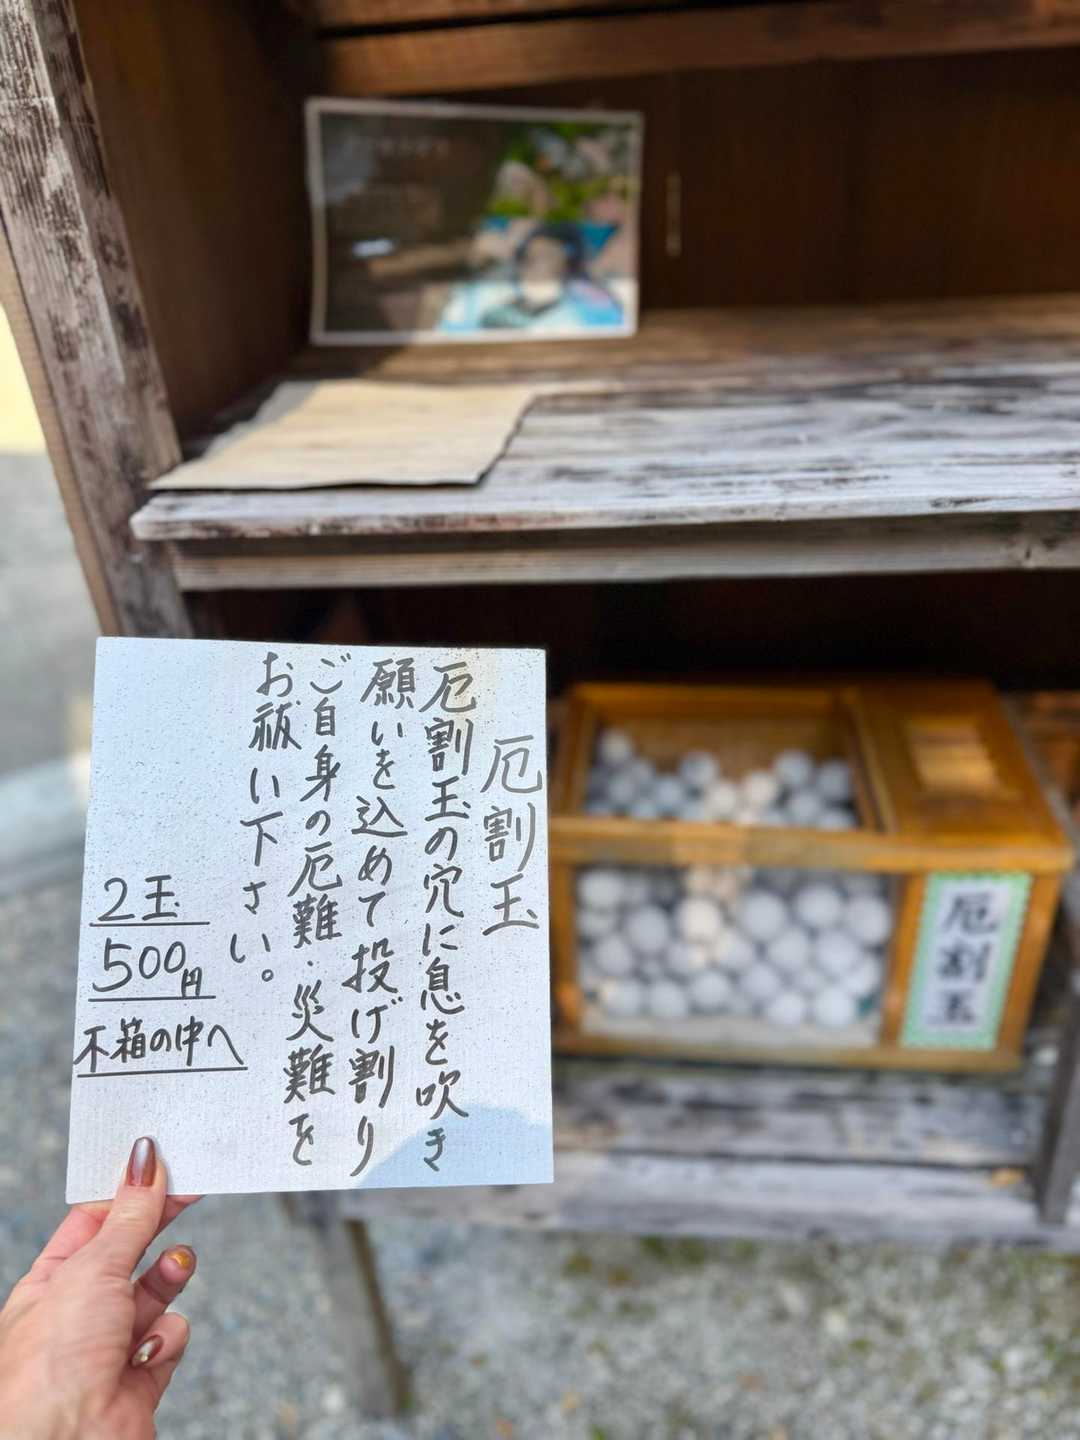 厄割玉
厄割玉の穴に息を吹き
願いを込めて投げ割り
ご自身の厄難・災難を
お祓い下さい。
2玉
500円
木箱の中へ
厄割玉